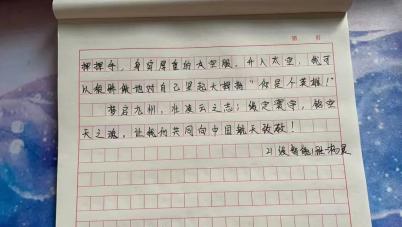 第 页
挥挥手，身穿厚重的太空服，升入太空，我可
以很骄傲地对自己竖起大拇指“你是个英雄！”
梦启九州，壮凌云之志；缘定寰宇，铸空
天之魂，让我们共同向中国航天致敬！
21级